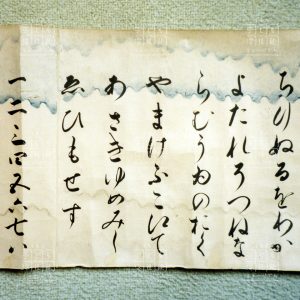 ちりぬるをわか
よたれそつねな
らむうゐのおく
やまけふこえて
あさきゆめみし
ゑひもせす
一二三四五六七八